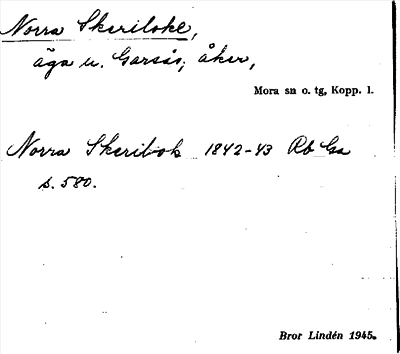 Norra Skeriloke,
äga u. Garsås; åker,
Mora sn o. tg, Kopp. l.
Norra Skeribok 1842-43 Rb Ga
s. 580.
Bror Lindén 1945.